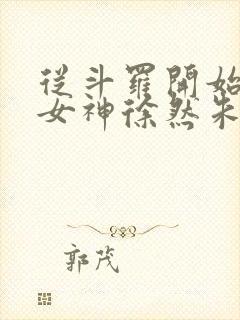 從斗羅開始
女神徐然朱
郭茂